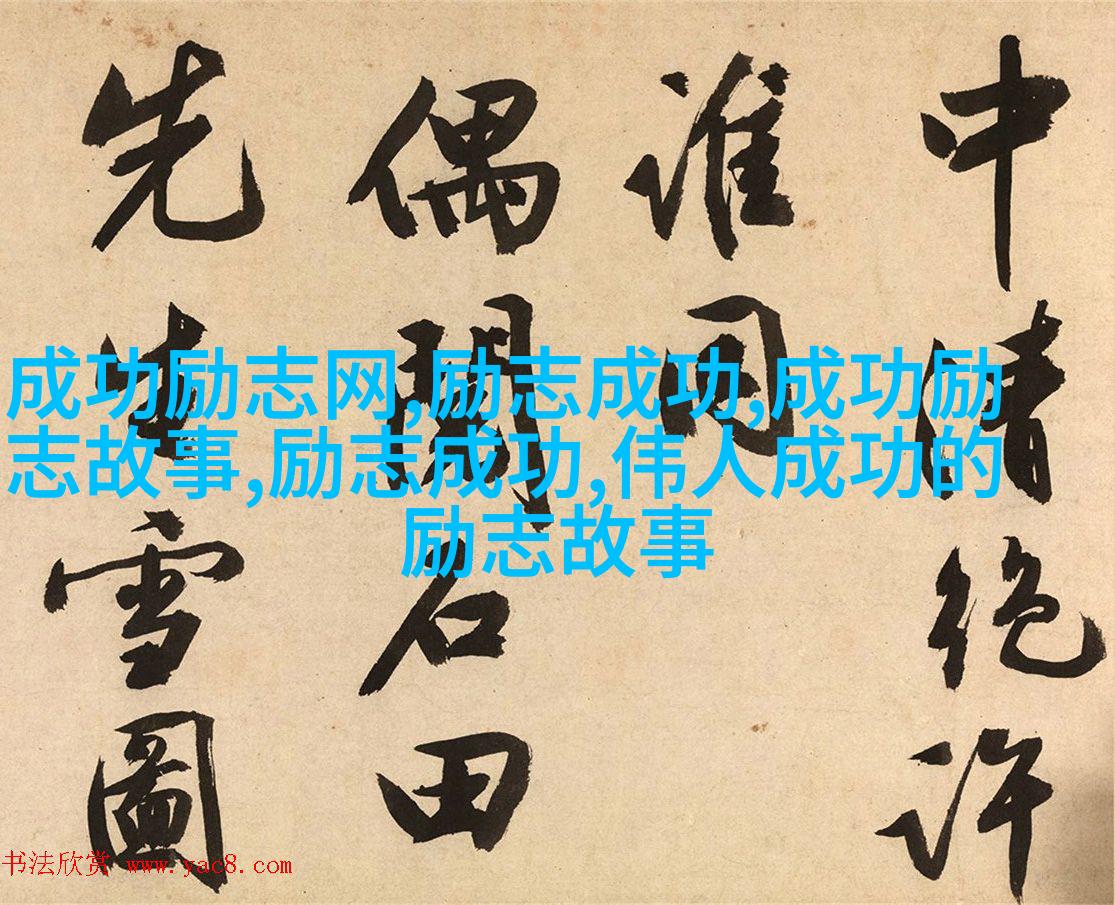 中清絶許
誰同
偶閲石田
先生雪圖
成功励志网,励志成功,成功励
志故事,励志成功,伟人成功的
励志故事
书法欣赏 www.yac8.com